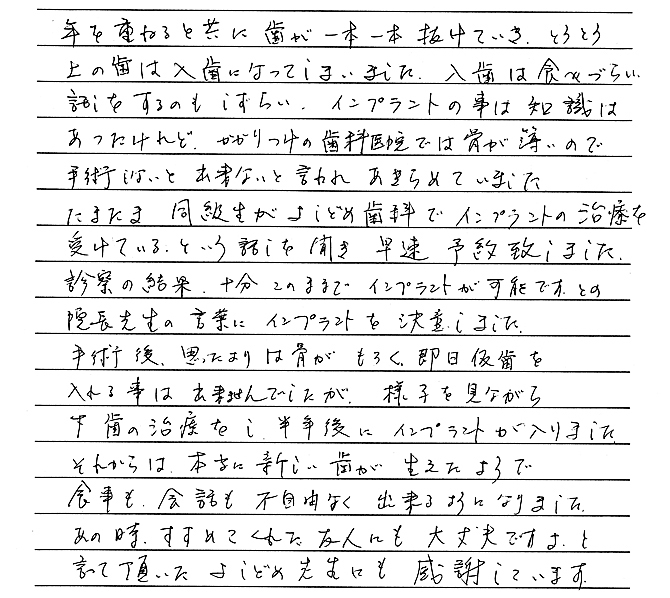 年を重ねると共に歯が一本一本抜けていき、とうとう
上の歯は入歯になってしまいました。入歯は食べづらい
話しをするのもしずらい。インプラントの事は知識は
あったけれど、かかりつけの歯科医院では骨が薄いので
手術しないと出来ないと言われあきらめていました
たまたま同級生がよしどめ歯科でインプラントの治療を
受けている。という話しを聞き早速予約致しました。
診察の結果、十分このままでインプラントが可能です。との
院長先生の言葉にインプラントを決意しました。
手術後、思ったよりは骨がもろく、即日仮歯を
入れる事は出来ませんでしたが、様子を見ながら
下歯の治療をし、半年後にインプラントが入りました
それからは、本当に新しい歯が生えたようで
食事も、会話も不自由なく出来るようになりました。
あの時、すすめてくれた友人にも大丈夫ですよ、と
言って頂いたよしどめ先生にも感謝しています。